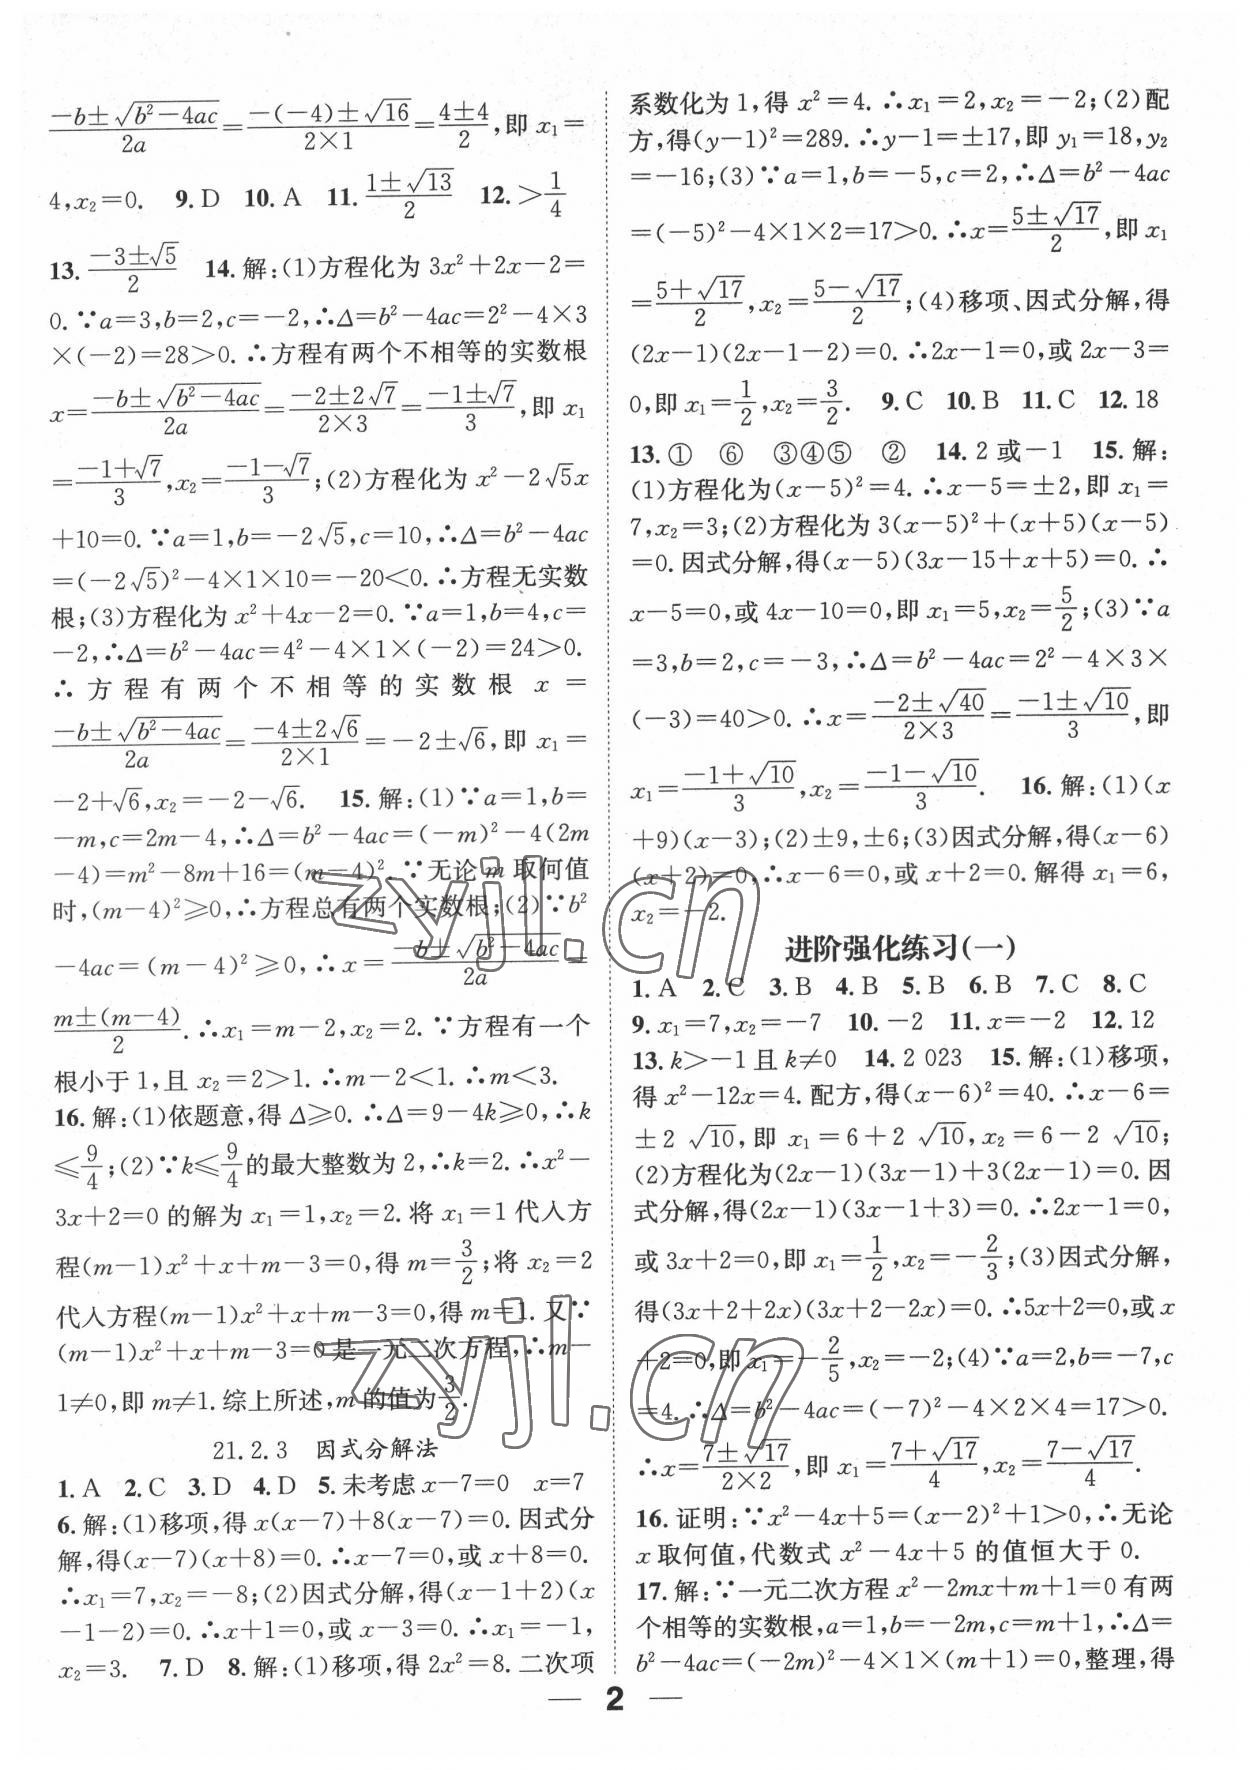 $\frac{-b±\sqrt{b^2-4ac}}{2a}=\frac{-(-4)±\sqrt{16}}{2×1}=\frac{4±4}{2}$,即 $x_1=$
$4,x_2=0.$ 9.D 10.A 11.$\frac{1±\sqrt{13}}{2}$ 12.$>\frac{1}{4}$
13.$\frac{-3±\sqrt{5}}{2}$ 14.解:(1)方程化为 $3x^2+2x-2=$
$0.∵a=3,b=2,c=-2,∴Δ=b^2-4ac=2^2-4×3$
$×(-2)=28>0.$∴方程有两个不相等的实数根
$x=\frac{-b±\sqrt{b^2-4ac}}{2a}=\frac{-2±2\sqrt{7}}{2×3}=\frac{-1±\sqrt{7}}{3}$,即 $x_1$
$=\frac{-1+\sqrt{7}}{3},x_2=\frac{-1-\sqrt{7}}{3}$;(2)方程化为 $x^2-2\sqrt{5}x$
$+10=0.∵a=1,b=-2\sqrt{5},c=10,∴Δ=b^2-4ac$
$=(-2\sqrt{5})^2-4×1×10=-20<0.$∴方程无实数
根;(3)方程化为 $x^2+4x-2=0.∵a=1,b=4,c=$
$-2,∴Δ=b^2-4ac=4^2-4×1×(-2)=24>0.$
∴方程有两个不相等的实数根 $x=$
$\frac{-b±\sqrt{b^2-4ac}}{2a}=\frac{-4±2\sqrt{6}}{2×1}=-2±\sqrt{6}$,即 $x_1=$
$-2+\sqrt{6},x_2=-2-\sqrt{6}.$ 15.解:(1)∵$a=1,b=$
$-m,c=2m-4,∴Δ=b^2-4ac=(-m)^2-4(2m$
$-4)=m^2-8m+16=(m-4)^2.$∵无论 m 取何值
时,$(m-4)^2≥0$,∴方程总有两个实数根;(2)∵$b^2$
$-4ac=(m-4)^2≥0,∴x=\frac{-b±\sqrt{b^2-4ac}}{2a}=$
$\frac{m±(m-4)}{2}.∴x_1=m-2,x_2=2.$∵方程有一个
根小于 1,且 $x_2=2>1.∴m-2<1.∴m<3.$
16.解:(1)依题意,得 $Δ≥0.∴Δ=9-4k≥0,∴k$
$≤\frac{9}{4}$;(2)∵$k≤\frac{9}{4}$的最大整数为 2,∴$k=2.∴x^2-$
$3x+2=0$ 的解为 $x_1=1,x_2=2.$将 $x_1=1$ 代入方
程$(m-1)x^2+x+m-3=0$,得 $m=\frac{3}{2}$;将 $x_2=2$
代入方程$(m-1)x^2+x+m-3=0$,得 $m=1.$又∵
$(m-1)x^2+x+m-3=0$ 是一元二次方程,∴$m-$
$1≠0$,即 $m≠1.$综上所述,m 的值为$\frac{3}{2}$.
21.2.3 因式分解法
1.A 2.C 3.D 4.D 5.未考虑 $x-7=0$ $x=7$
6.解:(1)移项,得 $x(x-7)+8(x-7)=0.$因式分
解,得$(x-7)(x+8)=0.∴x-7=0$,或 $x+8=0.$
$∴x_1=7,x_2=-8$;(2)因式分解,得$(x-1+2)(x$
$-1-2)=0.∴x+1=0$,或 $x-3=0.∴x_1=-1,$
$x_2=3.$ 7.D 8.解:(1)移项,得 $2x^2=8.$二次项
系数化为 1,得 $x^2=4.∴x_1=2,x_2=-2$;(2)配
方,得$(y-1)^2=289.∴y-1=±17$,即 $y_1=18,y_2$
$=-16$;(3)∵$a=1,b=-5,c=2,∴Δ=b^2-4ac$
$=(-5)^2-4×1×2=17>0.∴x=\frac{5±\sqrt{17}}{2}$,即 $x_1$
$=\frac{5+\sqrt{17}}{2},x_2=\frac{5-\sqrt{17}}{2}$;(4)移项、因式分解,得
$(2x-1)(2x-1-2)=0.∴2x-1=0$,或 $2x-3=$
0,即 $x_1=\frac{1}{2},x_2=\frac{3}{2}.$ 9.C 10.B 11.C 12.18
13.① ⑥ ③④⑤ ② 14.2 或-1 15.解:
(1)方程化为$(x-5)^2=4.∴x-5=±2$,即 $x_1=$
$7,x_2=3$;(2)方程化为 $3(x-5)^2+(x+5)(x-5)$
$=0.$因式分解,得$(x-5)(3x-15+x+5)=0.∴$
$x-5=0$,或 $4x-10=0$,即 $x_1=5,x_2=\frac{5}{2}$;(3)∵$a$
$=3,b=2,c=-3,∴Δ=b^2-4ac=2^2-4×3×$
$(-3)=40>0.∴x=\frac{-2±\sqrt{40}}{2×3}=\frac{-1±\sqrt{10}}{3}$,即
$x_1=\frac{-1+\sqrt{10}}{3},x_2=\frac{-1-\sqrt{10}}{3}.$ 16.解:(1)$(x$
$+9)(x-3)$;(2)±9,±6;(3)因式分解,得$(x-6)$
$(x+2)=0,∴x-6=0$,或 $x+2=0.$解得 $x_1=6,$
$x_2=-2.$
进阶强化练习(一)
1.A 2.C 3.B 4.B 5.B 6.B 7.C 8.C
9.$x_1=7,x_2=-7$ 10.-2 11.$x=-2$ 12.12
13.$k>-1$ 且 $k≠0$ 14.2 023 15.解:(1)移项,
得 $x^2-12x=4.$配方,得$(x-6)^2=40.∴x-6=$
$±2\sqrt{10}$,即 $x_1=6+2\sqrt{10},x_2=6-2\sqrt{10}$;
(2)方程化为$(2x-1)(3x-1)+3(2x-1)=0.$因
式分解,得$(2x-1)(3x-1+3)=0.∴2x-1=0,$
或 $3x+2=0$,即 $x_1=\frac{1}{2},x_2=-\frac{2}{3}$;(3)因式分解,
得$(3x+2+2x)(3x+2-2x)=0.∴5x+2=0$,或 $x$
$+2=0$,即 $x_1=-\frac{2}{5},x_2=-2$;(4)∵$a=2,b=-7,c$
$=4.∴Δ=b^2-4ac=(-7)^2-4×2×4=17>0.$
$∴x=\frac{7±\sqrt{17}}{2×2}$,即 $x_1=\frac{7+\sqrt{17}}{4},x_2=\frac{7-\sqrt{17}}{4}.$
16.证明:∵$x^2-4x+5=(x-2)^2+1>0$,∴无论
x 取何值,代数式 $x^2-4x+5$ 的值恒大于 0.
17.解:∵一元二次方程 $x^2-2mx+m+1=0$ 有两
个相等的实数根,$a=1,b=-2m,c=m+1,∴Δ=$
$b^2-4ac=(-2m)^2-4×1×(m+1)=0$,整理,得
— 2 —
zyjl.cn
zyjl.cn